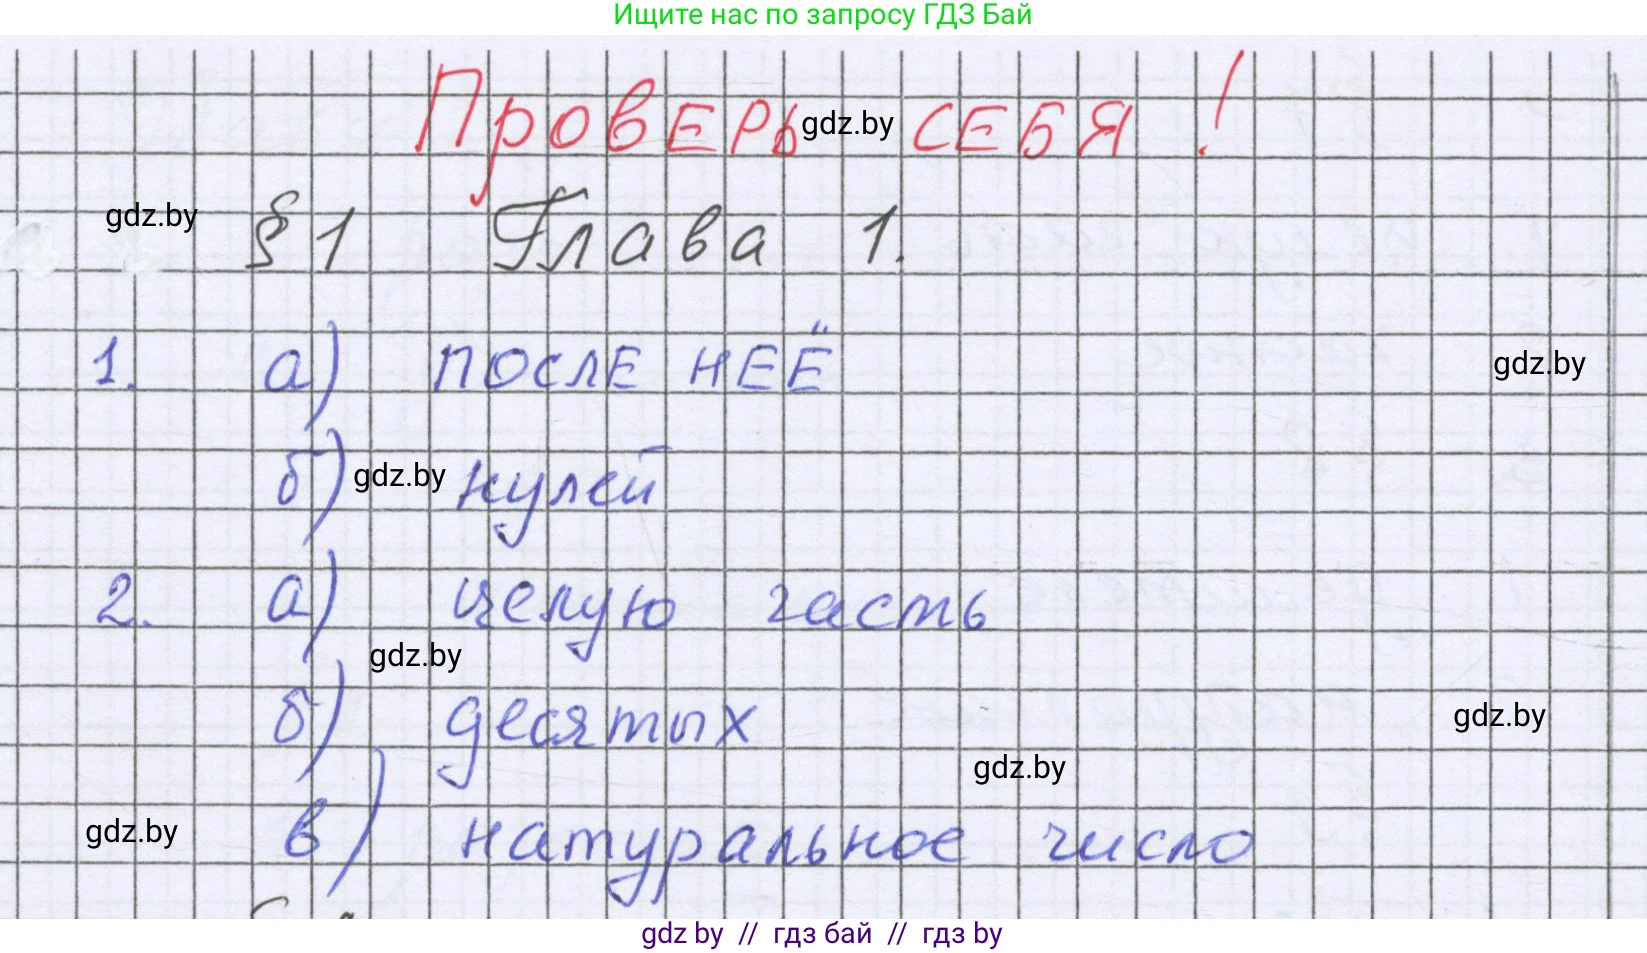 Ищите нас по запросу ГДЗ Бай
Проверь gdz.by себя!
gdz.by § 1 Глава 1.
1. а) после неё gdz.by
б) gdz.by нулей
2. а) целую часть
gdz.by
б) десятых gdz.by
gdz.by
gdz.by в) натуральное число
gdz by // гдз бай // гдз by